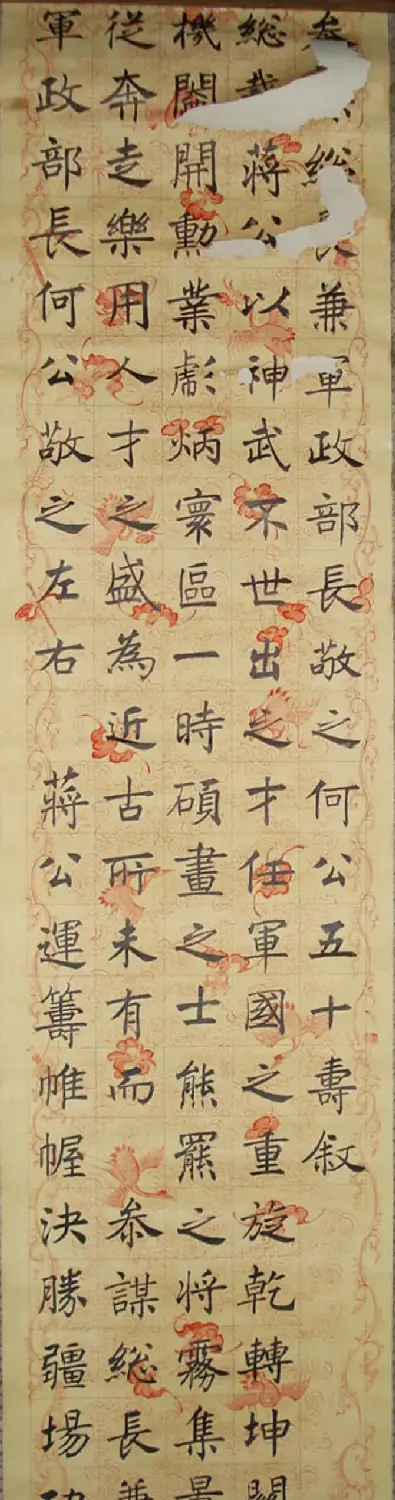 參謀總長兼軍政部長敬之何公五十壽敘
總裁蔣公以神武不世出之才任軍國之重旋乾轉坤闢
機闔開勳業彪炳寰區一時碩畫之士熊羆之將霧集景
從奔走樂用人才之盛為近古所未有而參謀總長兼
軍政部長何公敬之左右蔣公運籌帷幄決勝疆場功